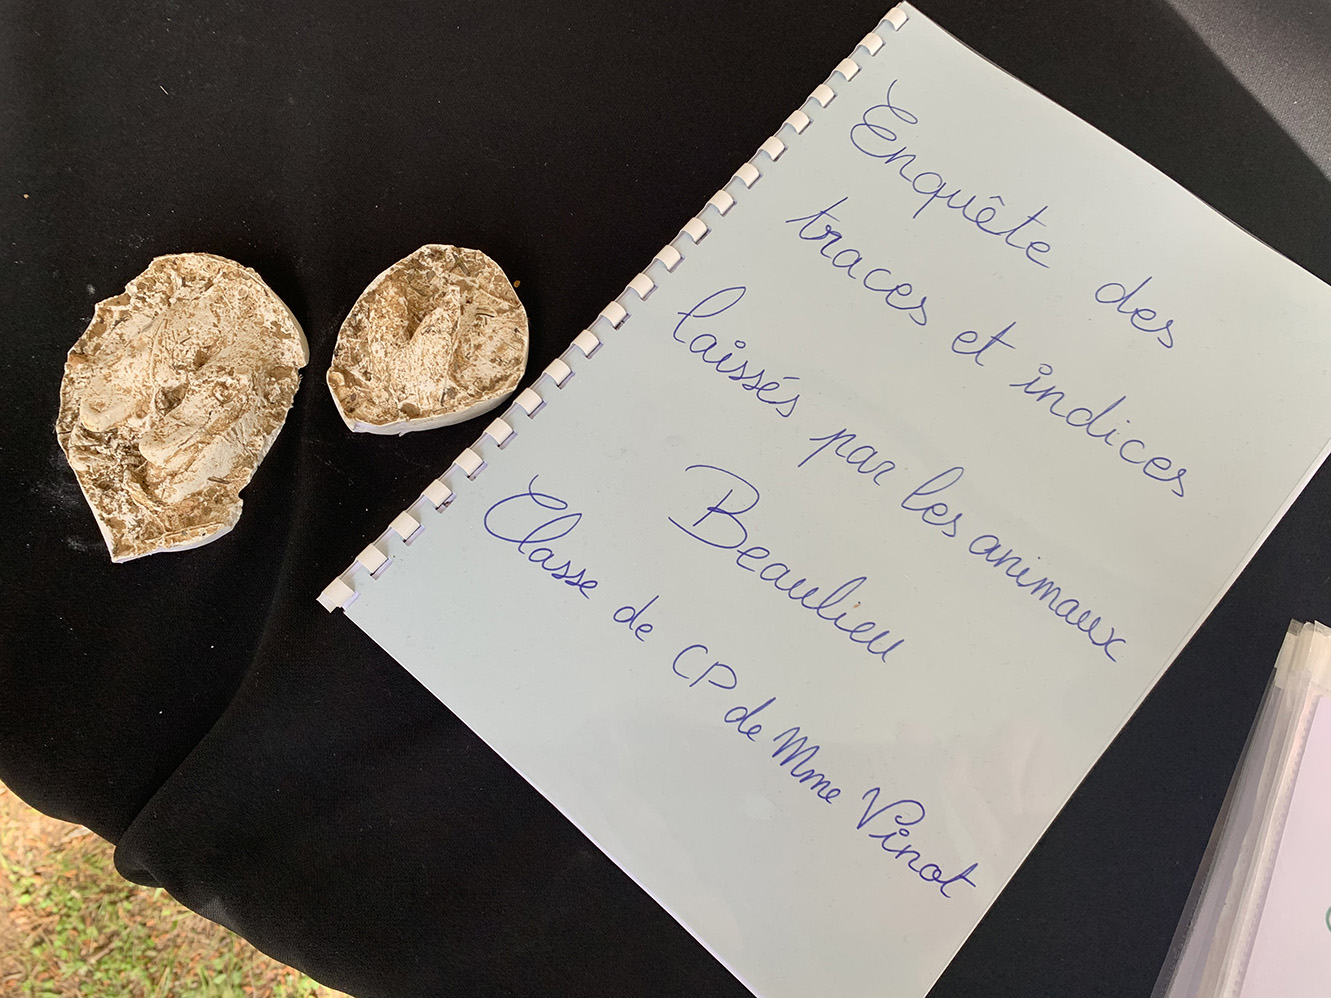 Enquête des
traces et indices
laissés par les animaux
Beaulieu
Classe de CP de Mme Vinot